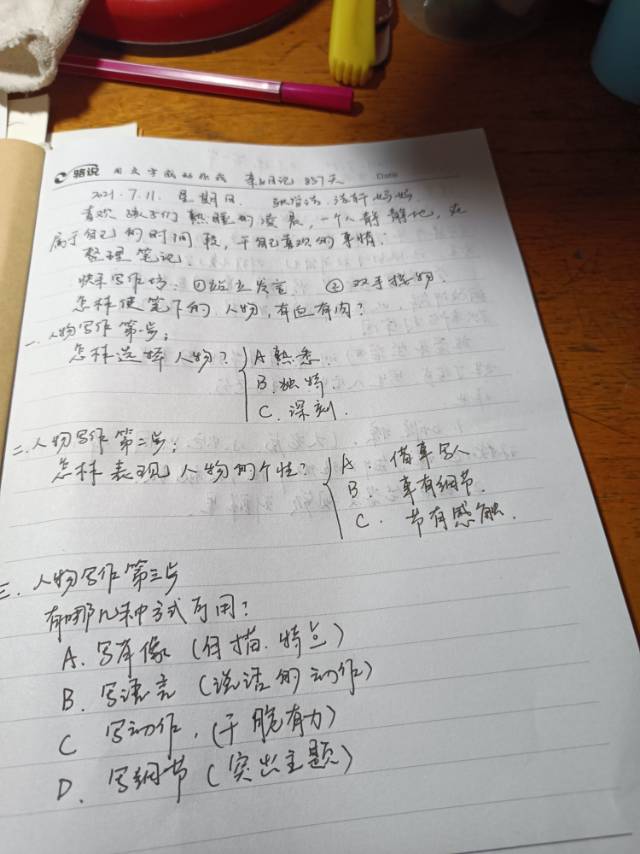 骆说 用文字 亲子日记 857天
Date
2021.7.11. 星期日.
喜欢孩子们熟睡的凌晨，一个人静静地，在
属于自己的时间段，干自己喜欢的事情.
整理笔记
快乐写作坊：①站立发言 ②双手接物.
怎样使笔下的人物，有血有肉？
一、人物写作第一步；
怎样选择人物？ A 熟悉.
B. 独特
C. 深刻.
二. 人物写作第二步；
怎样表现人物的个性？ A. 借事写人
B. 事有细节.
C. 节有感触.
三. 人物写作第三步
有哪几种方式可用？
A. 写肖像 (白描.特点)
B. 写语言 (说话的动作)
C 写动作. (干脆有力)
D. 写细节 (突出主题)